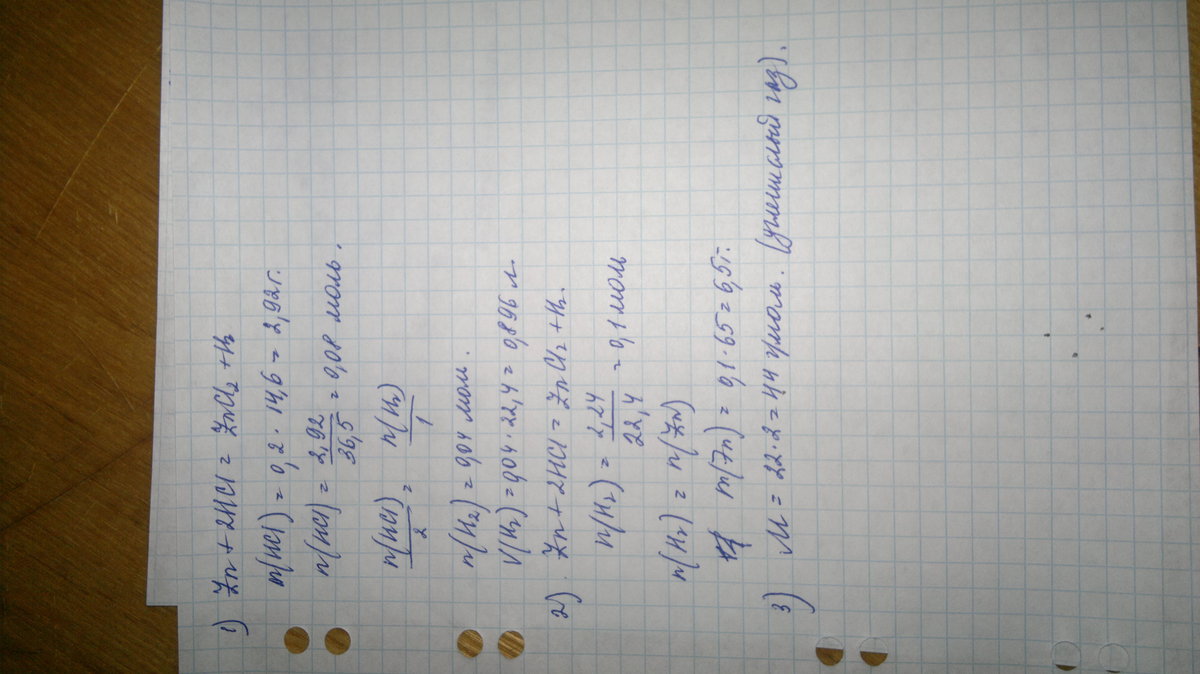 1) Zn + 2HCl = ZnCl₂ + H₂
m(HCl) = 0,2 · 14,6 = 2,92 г.
n(HCl) = 2,92 / 36,5 = 0,08 моль.
n(HCl) / 2 = n(H₂) / 1
n(H₂) = 0,04 мол.
V(H₂) = 0,04 · 22,4 = 0,896 л.
2). Zn + 2HCl = ZnCl₂ + H₂.
n(H₂) = 2,24 / 22,4 = 0,1 мол
n(H₂) = n(Zn)
m(Zn) = 0,1 · 65 = 6,5 г.
3) M = 22 · 2 = 44 г/мол. (углекислый газ).